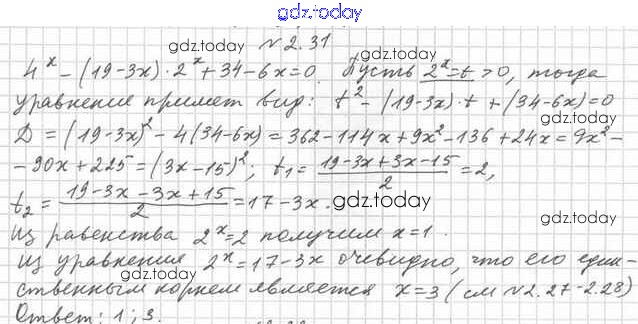 gdz.today
№ 2.31
gdz.today gdz.today
4^x - (19-3x)·2^x + 34-6x=0. Пусть 2^x=t >0, тогда
уравнение примет вид: t^2 - (19-3x)·t + (34-6x)=0
gdz.today
D = (19-3x)^2 - 4(34-6x) = 362-114x+9x^2-136+24x = 9x^2-
gdz.today
-90x+225=(3x-15)^2; t1 = (19-3x+3x-15)/2 = 2,
t2 = (19-3x-3x+15)/2 = 17-3x. gdz.today
gdz.today
Из равенства 2^x=2 получим x=1.
gdz.today gdz.today
Из уравнения 2^x=17-3x очевидно, что его един-
ственным корнем является x=3 (см №2.27-2.28)
Ответ: 1; 3.